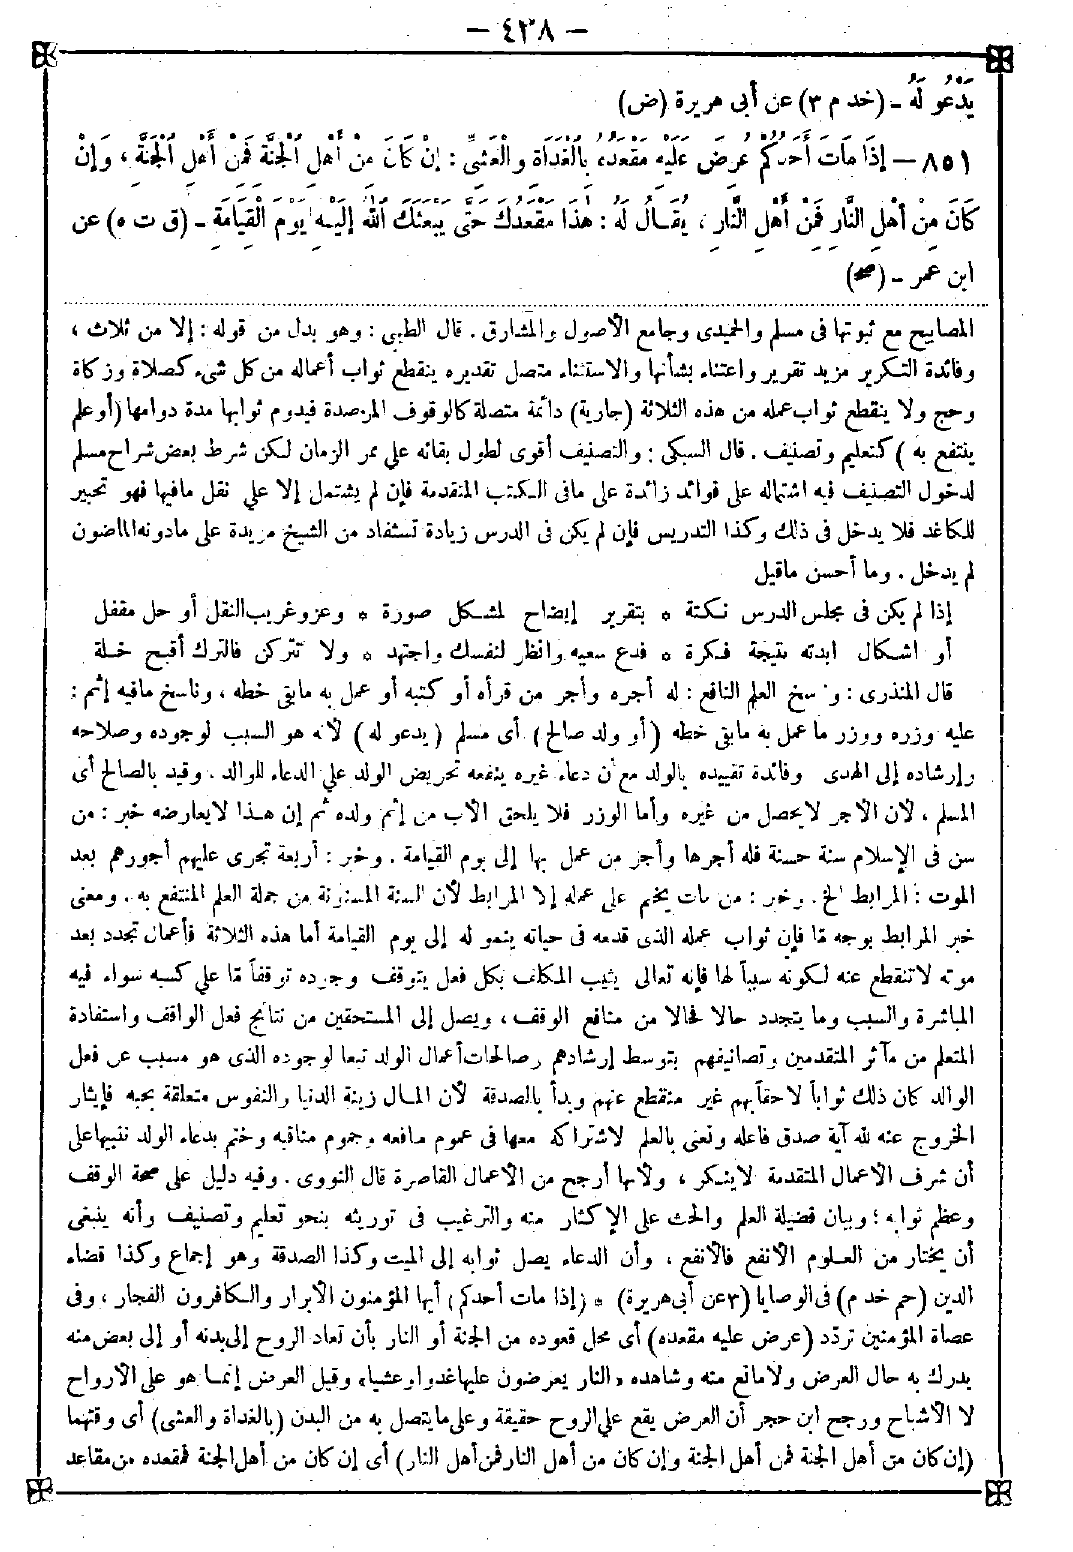 — ٤٣٨ —
يَدْعُو لَهُ ـ (خد م ٣) عن أبى هريرة (ض)
٨٥١ — إِذَا مَاتَ أَحَدُكُمْ عُرِضَ عَلَيْهِ مَقْعَدُهُ بِالْغَدَاةِ وَالْعَشِيِّ : إِنْ كَانَ مِنْ أَهْلِ الْجَنَّةِ فَمِنْ أَهْلِ الْجَنَّةِ ، وَإِنْ
كَانَ مِنْ أَهْلِ النَّارِ فَمِنْ أَهْلِ النَّارِ ، يُقَالُ لَهُ : هٰذَا مَقْعَدُكَ حَتَّى يَبْعَثَكَ اللهُ إِلَيْهِ يَوْمَ الْقِيَامَةِ ـ (ق ت ه) عن
ابن عمر ـ (صح)
المصابيح مع ثبوتها فى مسلم والحميدى وجامع الأصول والمشارق . قال الطيبى : وهو بدل من قوله : إلا من ثلاث ،
وفائدة التكرير مزيد تقرير واعتناء بشأنها والاستثناء متصل تقديره ينقطع ثواب أعماله من كل شىء كصلاة وزكاة
وحج ولا ينقطع ثواب عمله من هذه الثلاثة (جارية) دائمة متصلة كالوقوف المرصدة فيدوم ثوابها مدة دوامها (أو علم
ينتفع به ) كتعليم وتصنيف . قال السبكى : والتصنيف أقوى لطول بقائه على ممر الزمان لكن شرط بعض شراح مسلم
لدخول التصنيف فيه اشتماله على فوائد زائدة على مافى الكتب المتقدمة فإن لم يشتمل إلا على نقل مافيها فهو تحبير
للكاغد فلا يدخل فى ذلك وكذا التدريس فإن لم يكن فى الدرس زيادة تستفاد من الشيخ مزيدة على مادونه الماضون
لم يدخل . وما أحسن ماقيل
إذا لم يكن فى مجلس الدرس نكتة * بتقرير إيضاح لمشكل صورة * وعزو غريب النقل أو حل مقفل
أو اشكال ابدته نتيجة فكرة * فدع سعيه وانظر لنفسك واجتهد * ولا تتركن فالترك أقبح خلة
قال المنذرى : وناسخ العلم النافع : له أجره وأجر من قرأه أو كتبه أو عمل به مابقى خطه ، وناسخ مافيه إثم :
عليه وزره ووزر ماعمل به مابقى خطه (أو ولد صالح) أى مسلم (يدعو له) لأنه هو السبب لوجوده وصلاحه
وإرشاده إلى الهدى وفائدة تقييده بالولد مع أن دعاء غيره ينفعه تحريض الولد على الدعاء للوالد . وقيد بالصالح أى
المسلم ، لأن الأجر لايحصل من غيره وأما الوزر فلا يلحق الأب من إثم ولده ثم إن هذا لايعارضه خبر : من
سن فى الإسلام سنة حسنة فله أجرها وأجر من عمل بها إلى يوم القيامة . وخبر : أربعة تجرى عليهم أجورهم بعد
الموت : المرابط الخ . وخبر : من مات يختم على عمله إلا المرابط لأن السنة المسنونة من جملة العلم المنتفع به . ومعنى
خبر المرابط بوجه مّا فإن ثواب عمله الذى قدمه فى حياته ينمو له إلى يوم القيامة أما هذه الثلاثة فأعمال تجدد بعد
موته لاتنقطع عنه لكونه سبباً لها فإنه تعالى يثيب المكلف بكل فعل يتوقف وجوده توقفاً مّا على كسبه سواء فيه
المباشرة والسبب وما يتجدد حالا فحالا من منافع الوقف ، ويصل إلى المستحقين من نتائج فعل الواقف واستفادة
المتعلم من مآثر المتقدمين وتصانيفهم بتوسط إرشادهم وصالحات أعمال الولد تبعا لوجوده الذى هو مسبب عن فعل
الوالد كان ذلك ثواباً لاحقا بهم غير منقطع عنهم وبدأ بالصدقة لأن المال زينة الدنيا والنفوس متعلقة بحبه فإيثار
الخروج عنه لله آية صدق فاعله وثنى بالعلم لاشتراكه معها فى عموم منافعه وجموم مناقبه وختم بدعاء الولد تنبيها على
أن شرف الأعمال المتقدمة لاينكر ، ولأنها أرجح من الأعمال القاصرة قال النووى . وفيه دليل على صحة الوقف
وعظم ثوابه ؛ وبيان فضيلة العلم والحث على الإكثار منه والترغيب فى توريثه بنحو تعليم وتصنيف وأنه ينبغى
أن يختار من العلوم الأنفع فالأنفع ، وأن الدعاء يصل ثوابه إلى الميت وكذا الصدقة وهو إجماع وكذا قضاء
الدين (حم خد م) فى الوصايا (٣ عن أبى هريرة) * (إذا مات أحدكم) أيها المؤمنون الأبرار والكافرون الفجار ، وفى
عصاة المؤمنين تردّد (عرض عليه مقعده) أى محل قعوده من الجنة أو النار بأن تعاد الروح إلى بدنه أو إلى بعض منه
يدرك به حال العرض ولامانع منه وشاهده « النار يعرضون عليها غدوا وعشيا» وقيل العرض إنما هو على الأرواح
لا الأشباح ورجح ابن حجر أن العرض يقع على الروح حقيقة وعلى مايتصل به من البدن (بالغداة والعشى) أى وقتهما
(إن كان من أهل الجنة فمن أهل الجنة وإن كان من أهل النار فمن أهل النار) أى إن كان من أهل الجنة فمقعده من مقاعد